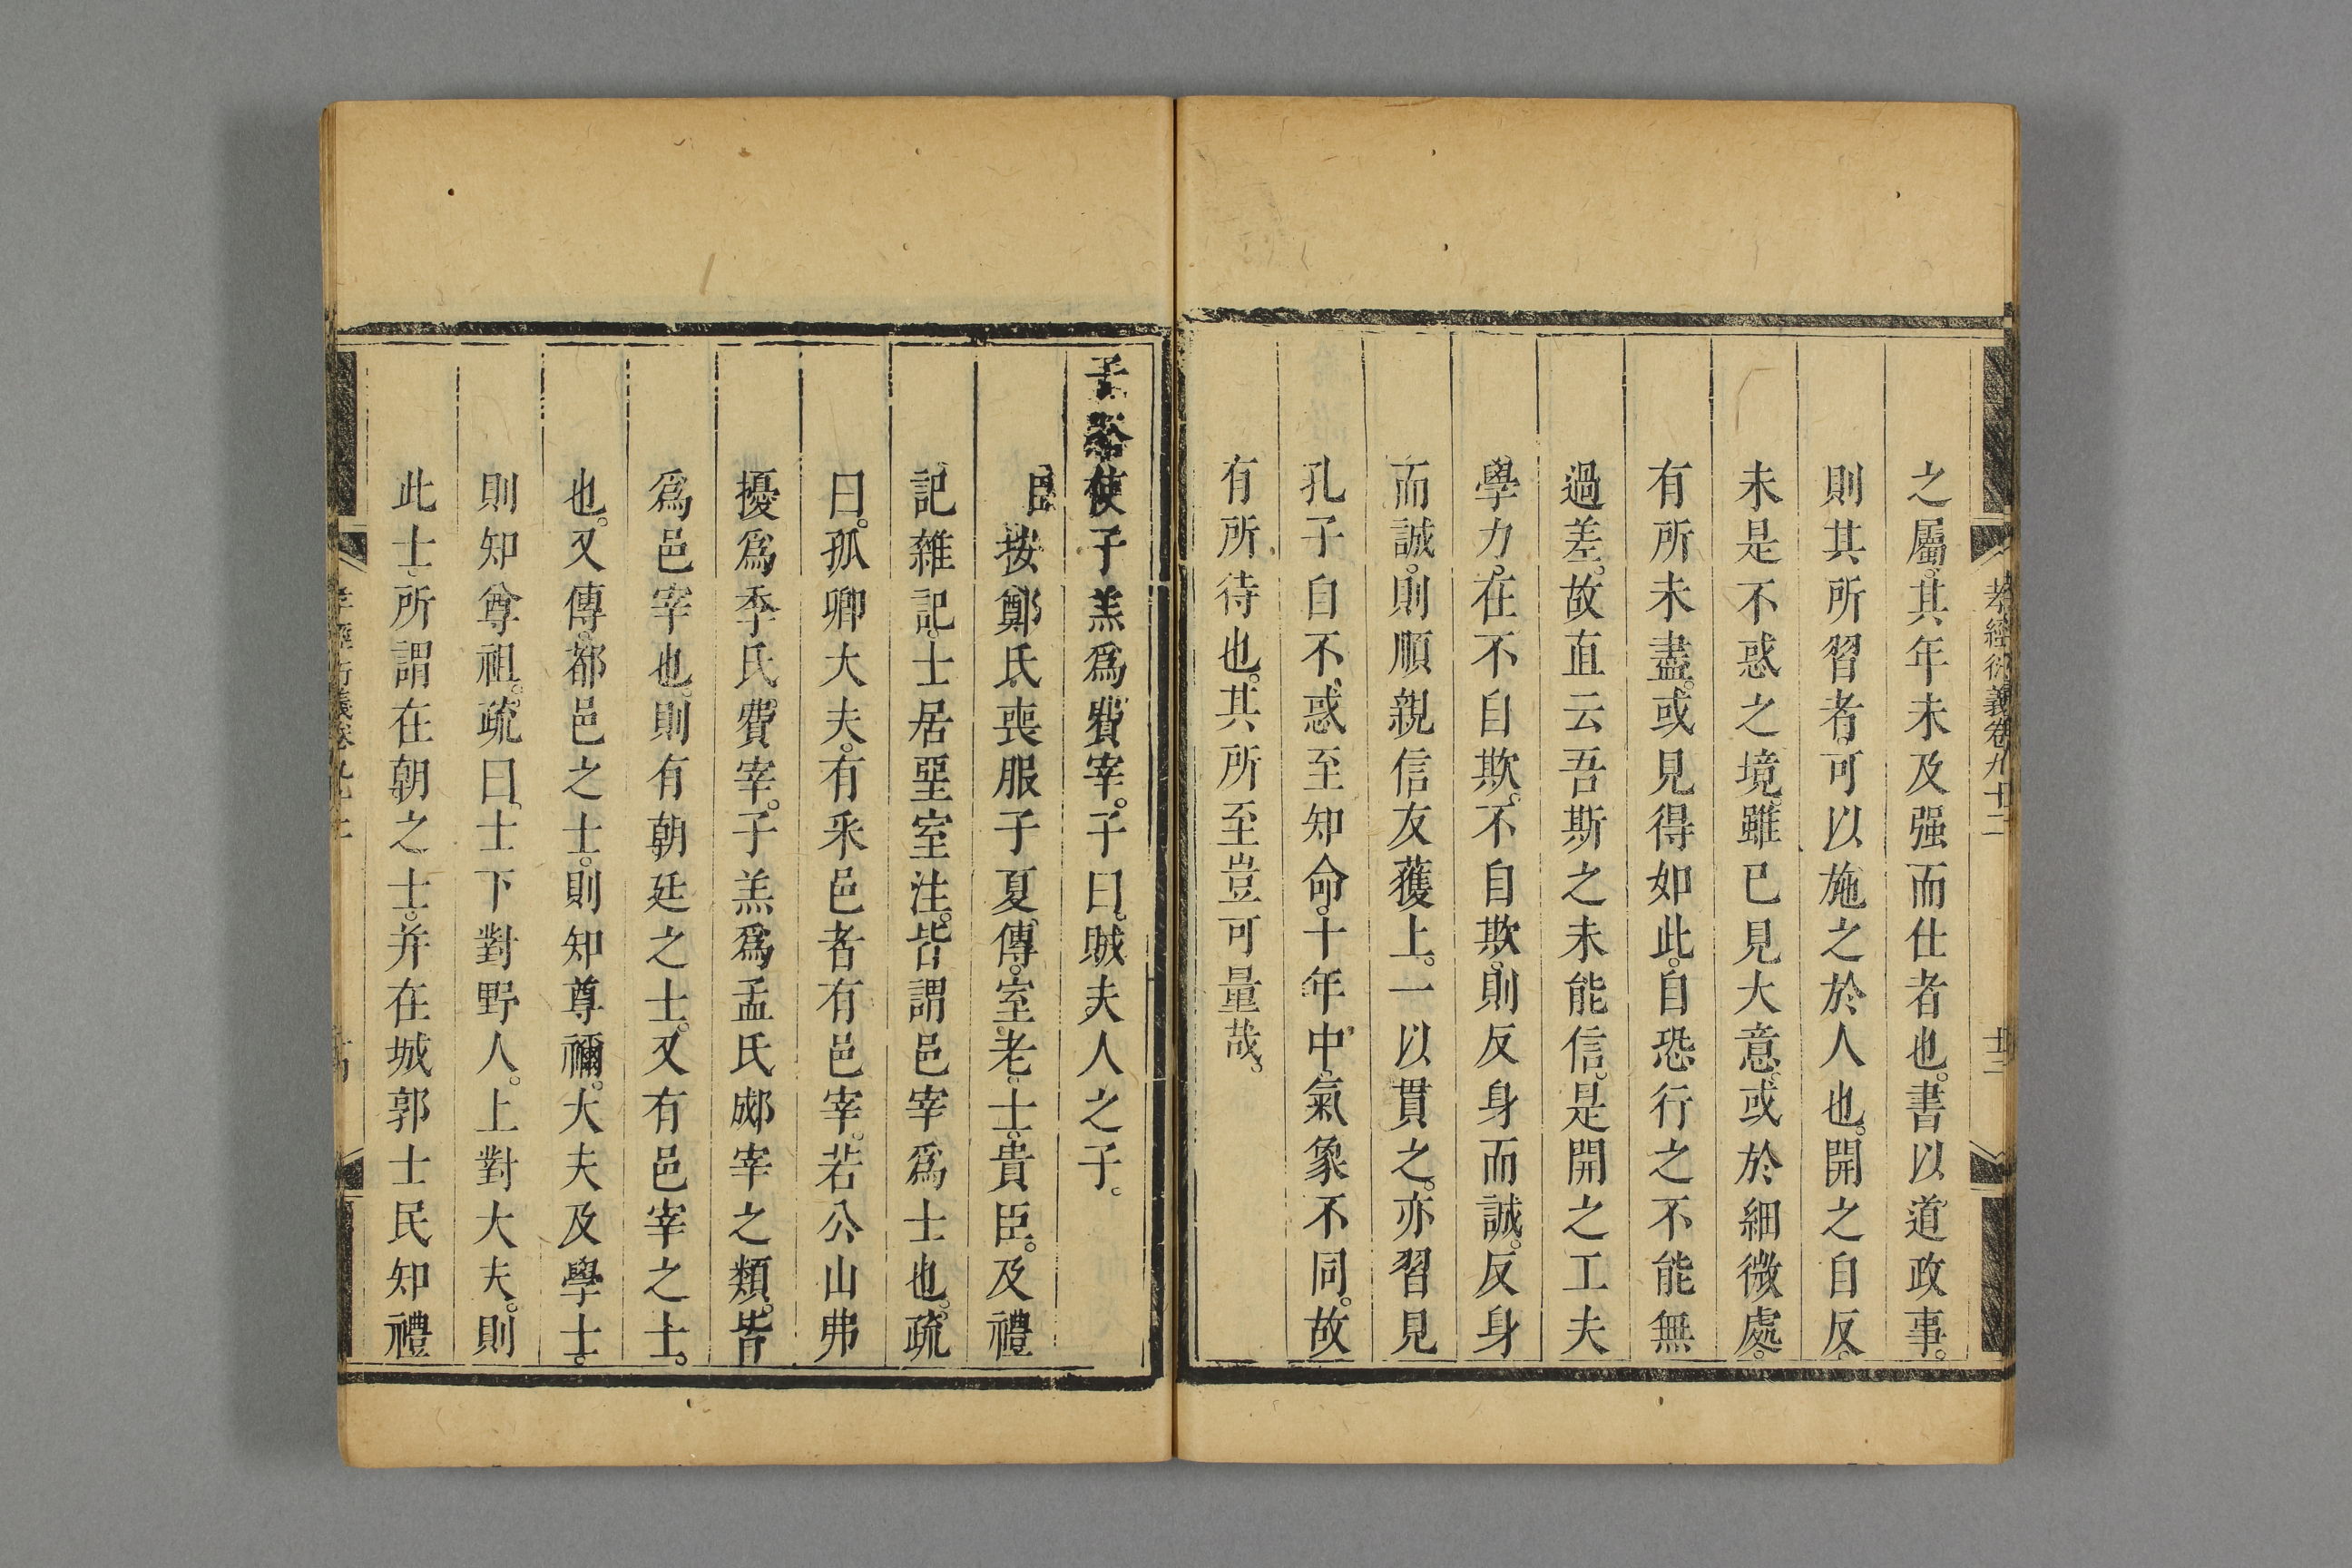 孝經衍義卷九十二
廿三
之屬。其年未及强而仕者也。書以道政事。
則其所習者。可以施之於人也。開之自反。
未是不惑之境。雖已見大意。或於細微處。
有所未盡。或見得如此。自恐行之不能無
過差。故直云吾斯之未能信。是開之工夫
學力。在不自欺。不自欺。則反身而誠。反身
而誠。則順親信友獲上。一以貫之。亦習見
孔子自不惑至知命。十年中。氣象不同。故
有所待也。其所至豈可量哉。
子路使子羔爲費宰。子曰。賊夫人之子。
臣按鄭氏喪服子夏傳。室老。士。貴臣。及禮
記雜記。士居堊室注。皆謂邑宰爲士也。疏
曰。孤卿大夫。有采邑者有邑宰。若公山弗
擾爲季氏費宰。子羔爲孟氏郕宰之類。皆
爲邑宰也。則有朝廷之士。又有邑宰之士。
也。又傳。都邑之士。則知尊禰。大夫及學士。
則知尊祖。疏曰。士下對野人。上對大夫。則
此士。所謂在朝之士。并在城郭士民知禮